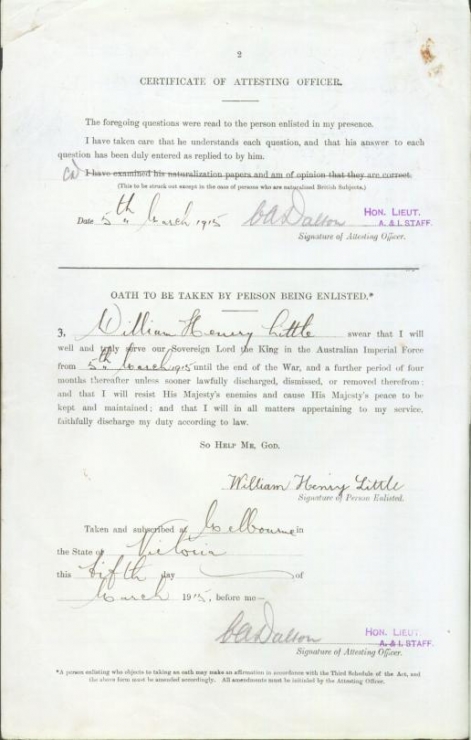 2
CERTIFICATE OF ATTESTING OFFICER.
The foregoing questions were read to the person enlisted in my presence.
I have taken care that he understands each question, and that his answer to each
question has been duly entered as replied to by him.
I have examined his naturalization papers and am of opinion that they are correct.
(This to be struck out except in the case of persons who are naturalized British Subjects.)
Date 5th March 1915 CA Dalton HON. LIEUT.
A. & I. STAFF.
Signature of Attesting Officer.
OATH TO BE TAKEN BY PERSON BEING ENLISTED.*
3. William Henry Little swear that I will
well and truly serve our Sovereign Lord the King in the Australian Imperial Force
from 5th March 1915 until the end of the War, and a further period of four
months thereafter unless sooner lawfully discharged, dismissed, or removed therefrom:
and that I will resist His Majesty's enemies and cause His Majesty's peace to be
kept and maintained; and that I will in all matters appertaining to my service,
faithfully discharge my duty according to law.
SO HELP ME, GOD.
William Henry Little
Signature of Person Enlisted.
Taken and subscribed at Melbourne in
the State of Victoria
this fifth day of
March 1915, before me—
CA Dalton HON. LIEUT.
A. & I. STAFF.
Signature of Attesting Officer.
*A person enlisting who objects to taking an oath may make an affirmation in accordance with the Third Schedule of the Act, and
the above form must be amended accordingly. All amendments must be initialed by the Attesting Officer.